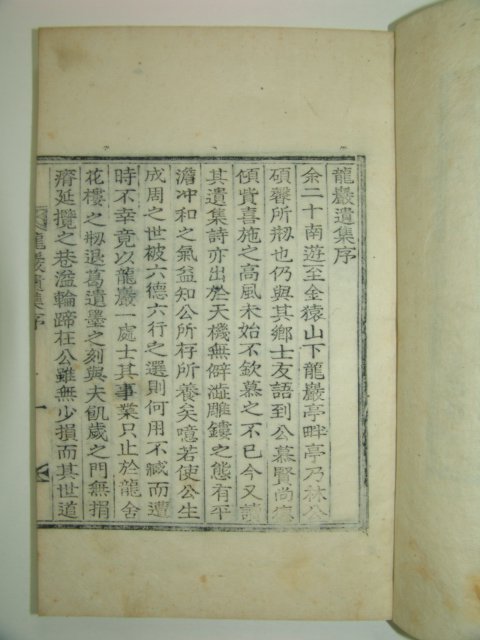 龍巖遺集序
余二十南遊至金猿山下龍巖亭畔亭乃林公
碩馨所刱也仍與其鄕士友語到公慕賢尚德
傾貲喜施之高風未始不欽慕之不已今又讀
其遺集詩亦出於天機無僻澁雕鏤之態有平
澹冲和之氣益知公所存所養矣噫若使公生
成周之世被六德六行之選則何用不臧而遭
時不幸竟以龍巖一處士其事業只止於龍舍
花樓之刱退葛遺墨之刻與夫飢歲之門無捐
瘠延攬之巷溢輪蹄在公雖無少損而其世道
龍巖遺集序
一